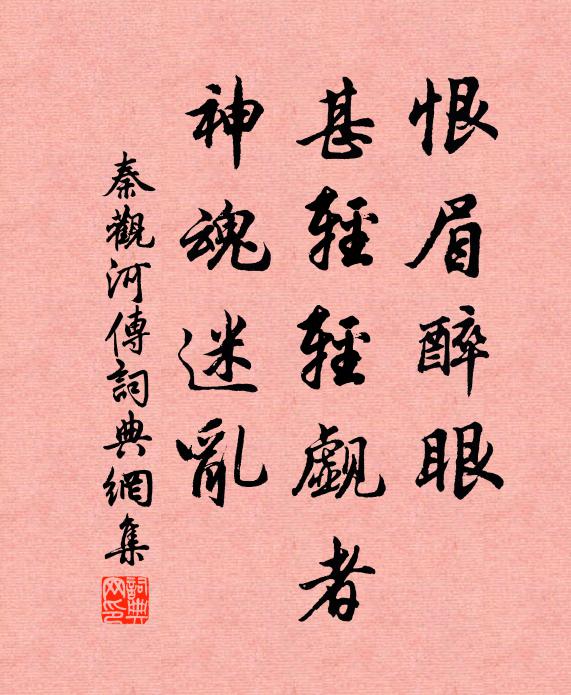 恨眉醉眼
甚輕輕覷者
神魂迷亂
秦觀河傳詞典網集
詞典网